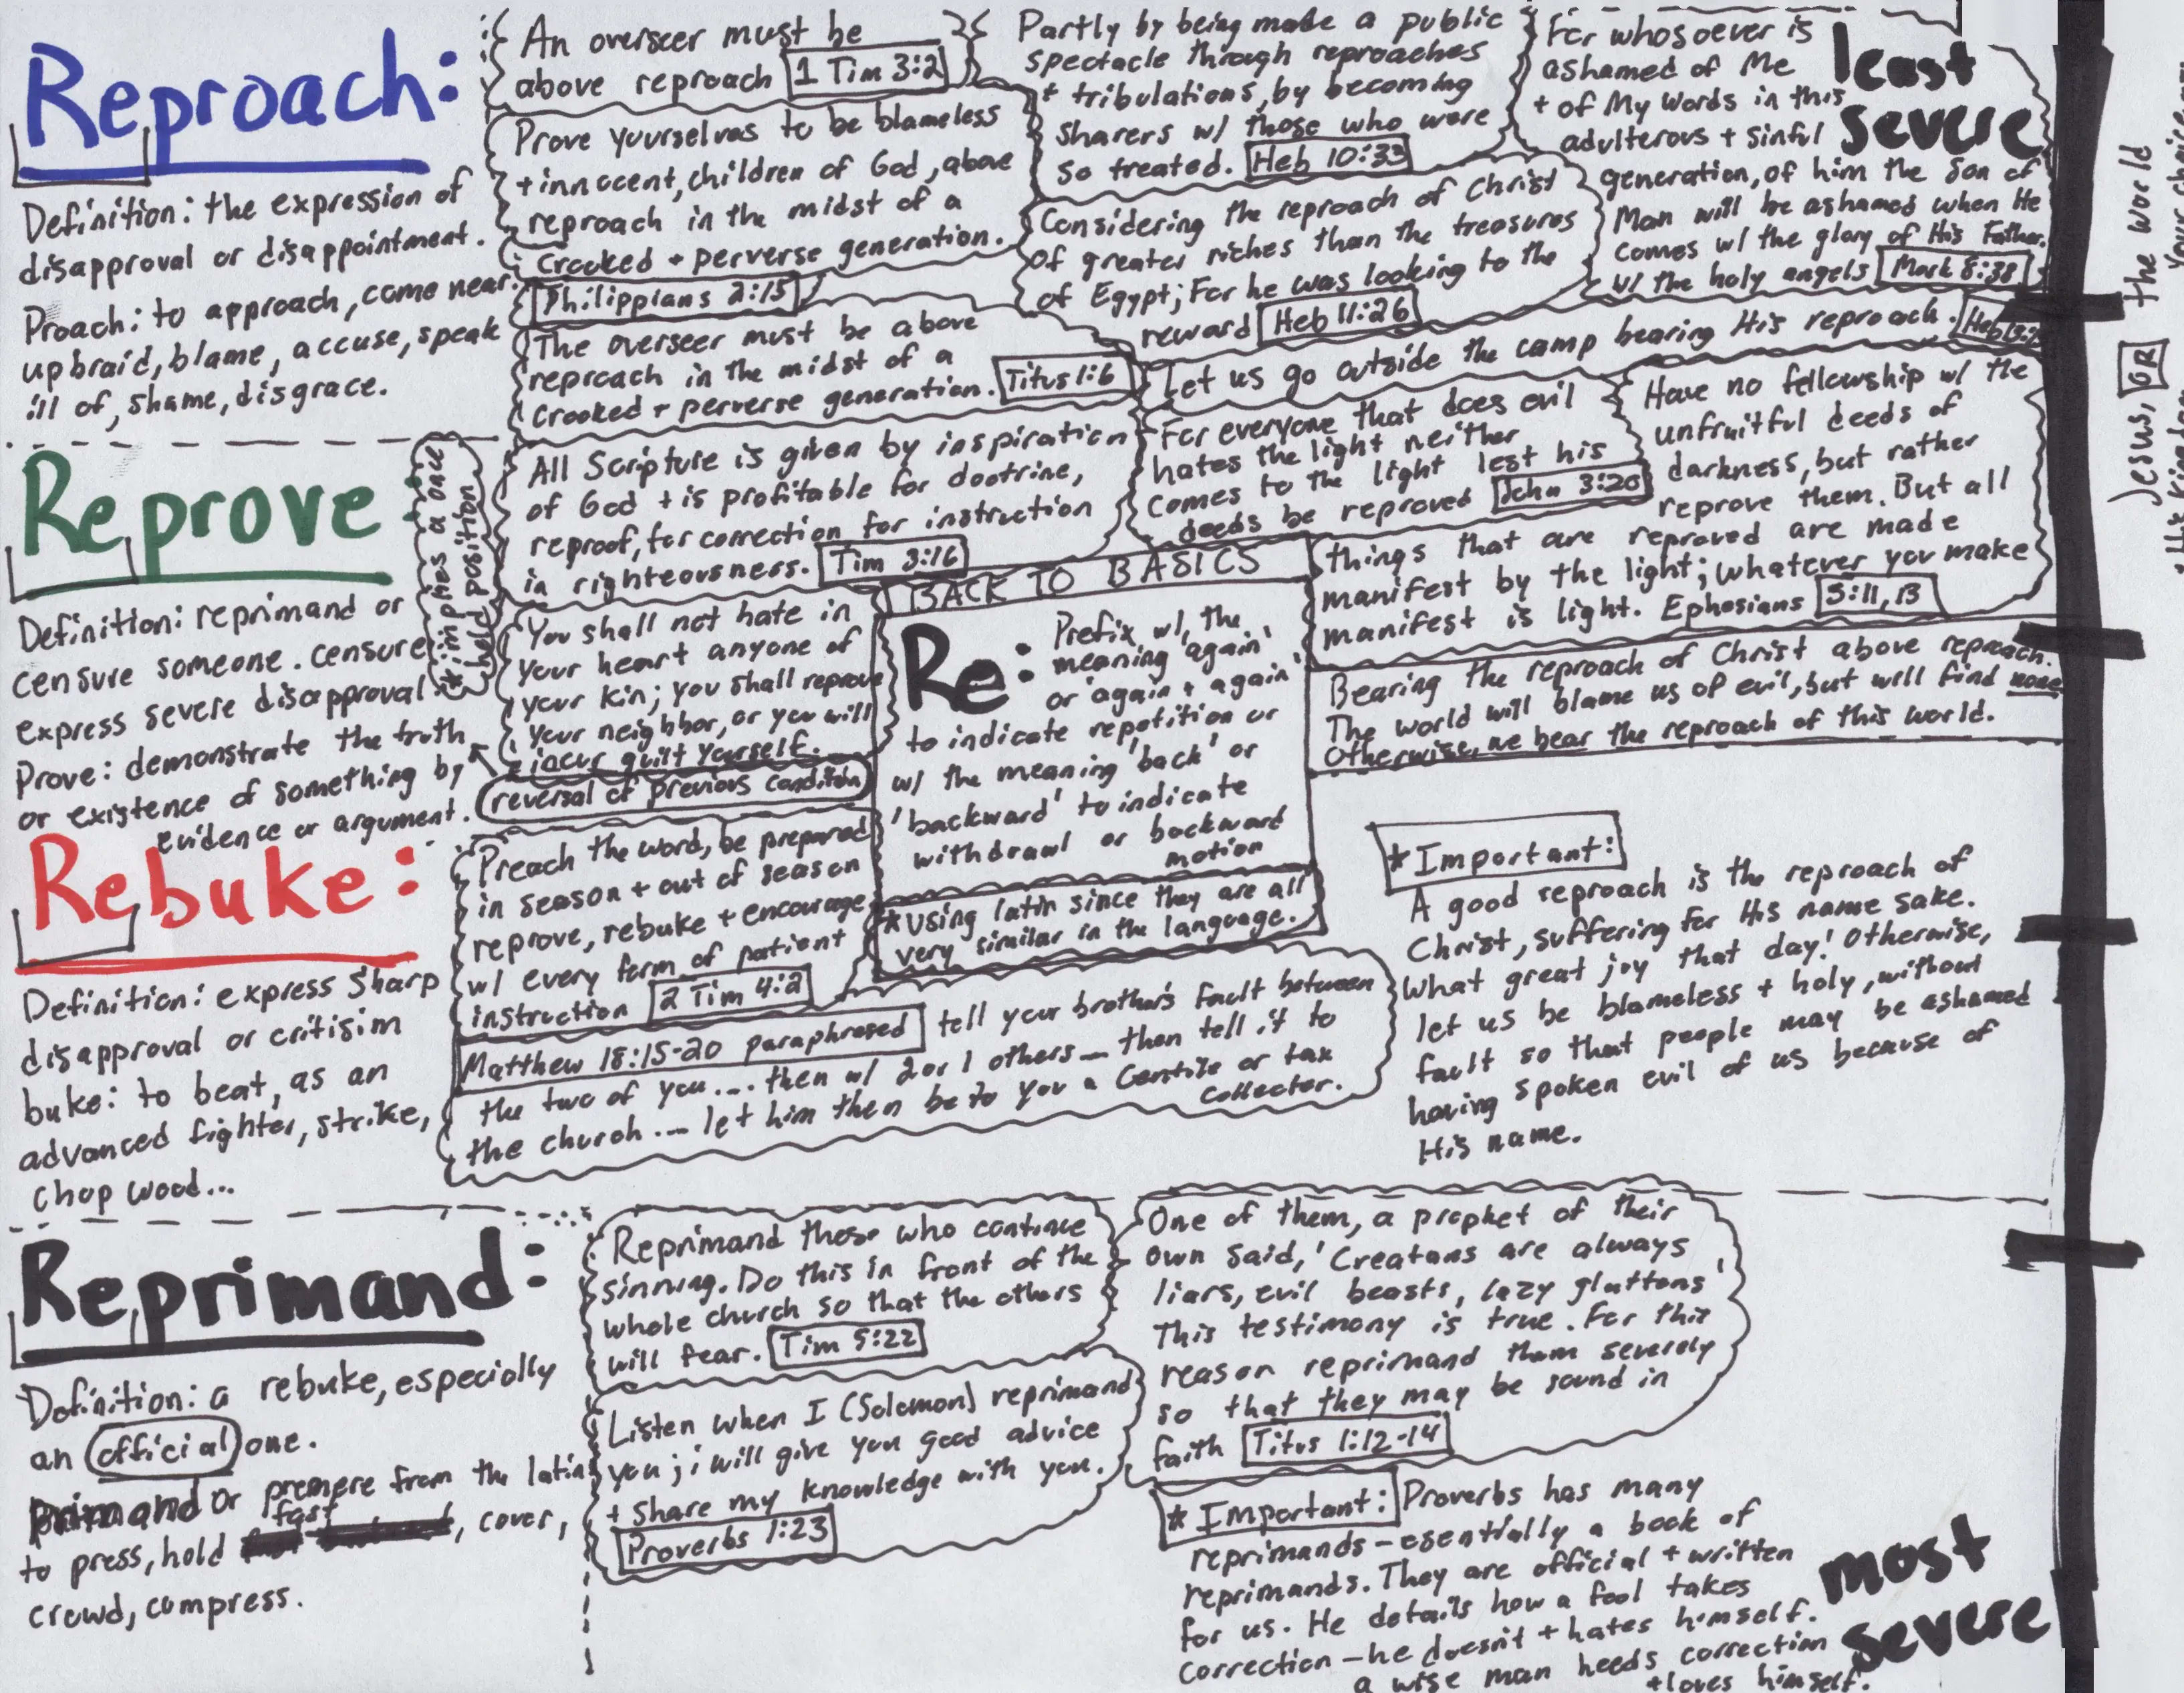 Reproach:
Definition: the expression of
disapproval or disappointment.
Proach: to approach, come near.
upbraid, blame, accuse, speak
ill of, shame, disgrace.
An overseer must be
above reproach 1 Tim 3:2
Prove yourselves to be blameless
+ innocent, children of God, above
reproach in the midst of a
crooked + perverse generation.
Philippians 2:15
The overseer must be above
reproach in the midst of a
crooked + perverse generation. Titus 1:6
Partly by being made a public
spectacle through reproaches
+ tribulations, by becoming
sharers w/ those who were
so treated. Heb 10:33
Considering the reproach of Christ
of greater riches than the treasures
of Egypt; For he was looking to the
reward Heb 11:26
For whosoever is
ashamed of Me
+ of My words in this
adulterous + sinful
generation, of him the Son of
Man will be ashamed when He
comes w/ the glory of His Father.
w/ the holy angels Mark 8:38
least
severe
Let us go outside the camp bearing His reproach. Heb
Reprove:
*implies a once
held position
Definition: reprimand or
censure someone. censure:
express severe disapproval
Prove: demonstrate the truth
or existence of something by
evidence or argument.
All Scripture is given by inspiration
of God + is profitable for doctrine,
reproof, for correction, for instruction
in righteousness. Tim 3:16
For everyone that does evil
hates the light neither
comes to the light lest his
deeds be reproved John 3:20
Have no fellowship w/ the
unfruitful deeds of
darkness, but rather
reprove them. But all
things that are reproved are made
manifest by the light; whatever you make
manifest is light. Ephesians 5:11,13
You shall not hate in
your heart anyone of
your kin; you shall reprove
your neighbor, or you will
incur guilt yourself.
reversal of previous condition
BACK TO BASICS
Re: Prefix w/, the
meaning 'again'
or 'again + again'
to indicate repetition or
w/ the meaning 'back' or
'backward' to indicate
withdrawl or backward
motion
*using latin since they are all
very similar in the language.
Bearing the reproach of Christ above reproach.
The world will blame us of evil, but will find none
Otherwise, we bear the reproach of this world.
Rebuke:
Definition: express sharp
disapproval or critisim
buke: to beat, as an
advanced fighter, strike,
chop wood...
Preach the word, be prepared
in season + out of season
reprove, rebuke + encourage
w/ every form of patient
instruction 2 Tim 4:2
Matthew 18:15-20 paraphrased tell your brother's fault between
the two of you... then w/ 2 or 1 others— then tell it to
the church... let him then be to you a Gentile or tax
collector.
*Important:
A good reproach is the reproach of
Christ, suffering for His name sake.
What great joy that day! Otherwise,
let us be blameless + holy, without
fault so that people may be ashamed
having spoken evil of us because of
His name.
Reprimand:
Definition: a rebuke, especially
an official one.
primand or premere from the latin
to press, hold fast, cover,
crowd, compress.
Reprimand those who continue
sinning. Do this in front of the
whole church so that the others
will fear. Tim 5:22
Listen when I (Solomon) reprimand
you; i will give you good advice
+ share my knowledge with you.
Proverbs 1:23
One of them, a prophet of their
own said, 'Creatans are always
liars, evil beasts, lazy gluttons'
This testimony is true. For this
reason reprimand them severely
so that they may be sound in
faith Titus 1:12-14
*Important: Proverbs has many
reprimands - esentially a book of
reprimands. They are official + written
for us. He details how a fool takes
correction - he doesn't + hates himself.
a wise man heeds correction
+ loves himself.
most
severe
Jesus, OR the world